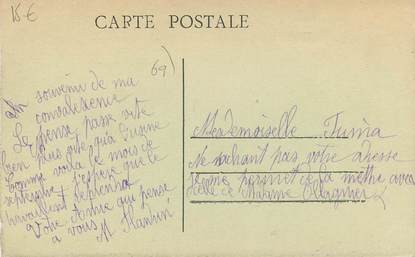 15 €
CARTE POSTALE
69)
souvenir de ma
convalescence
Le temps passe vite
bien plus vite qu'à l'usine
Comme voila le mois de
septembre j'espère que le
travaillent reprendra
Votre Amie qui pense
a vous M
Mademoiselle
Ne sachant pas votre adresse
je me permet de la mettre avec
celle de Madame